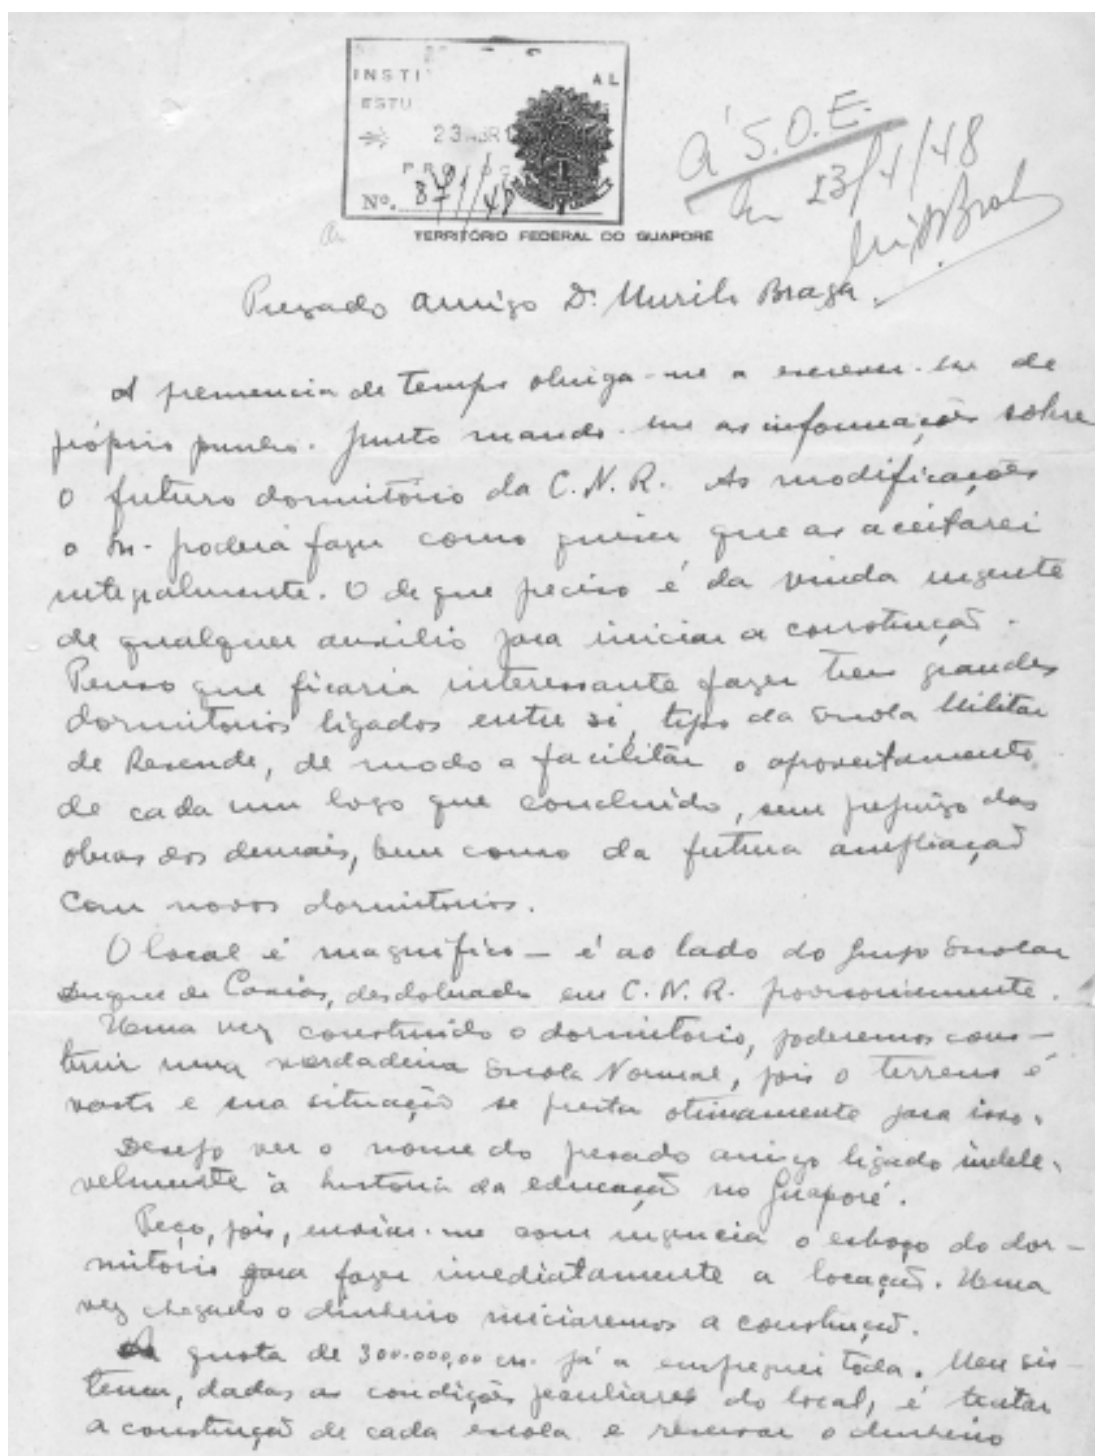 INSTI AL
ESTU
23 ABR 1
PRO
Nº. 871/48
TERRITÓRIO FEDERAL DO GUAPORÉ
À S.O.E.
Em 23/4/48
Prezado amigo Dr. Murilo Braga.
A premencia de tempo obriga-me a escrever-lhe de
próprio punho. Junto mando-lhe as informações sobre
o futuro dormitório da C.N.R. As modificações
o Sr. poderá fazer como quiser que as aceitarei
integralmente. O de que preciso é da vinda urgente
de qualquer auxilio para iniciar a construção.
Penso que ficaria interessante fazer tres grandes
dormitorios ligados entre si, tipo da Escola Militar
de Resende, de modo a facilitar o aproveitamento
de cada um logo que concluido, sem prejuizo das
obras dos demais, bem como da futura ampliação
com novos dormitorios.
O local é magnifico — é ao lado do Grupo Escolar
Duque de Caxias, desdobrado em C.N.R. provisoriamente.
Uma vez construido o dormitorio, poderemos cons-
truir uma verdadeira Escola Normal, pois o terreno é
vasto e sua situação se presta otimamente para isso.
Desejo ver o nome do prezado amigo ligado indele-
velmente à historia da educação no Guaporé.
Peço, pois, enviar-me com urgencia o esboço do dor-
mitorio para fazer imediatamente a locação. Uma
vez chegado o dinheiro iniciaremos a construção.
A quota de 300.000,00 cr. já a empreguei toda. Meu sis-
tema, dadas as condições peculiares do local, é tratar
a construção de cada escola e reservar o dinheiro